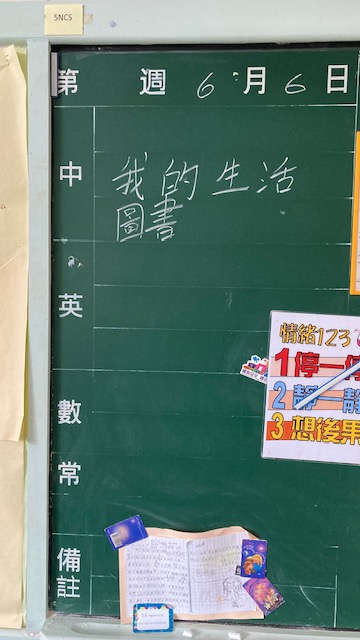 5NCS
第 週 6月6日
中 我的生活
圖書
英
數
常
備註
情緒123
1停一
2靜一靜
3想後果